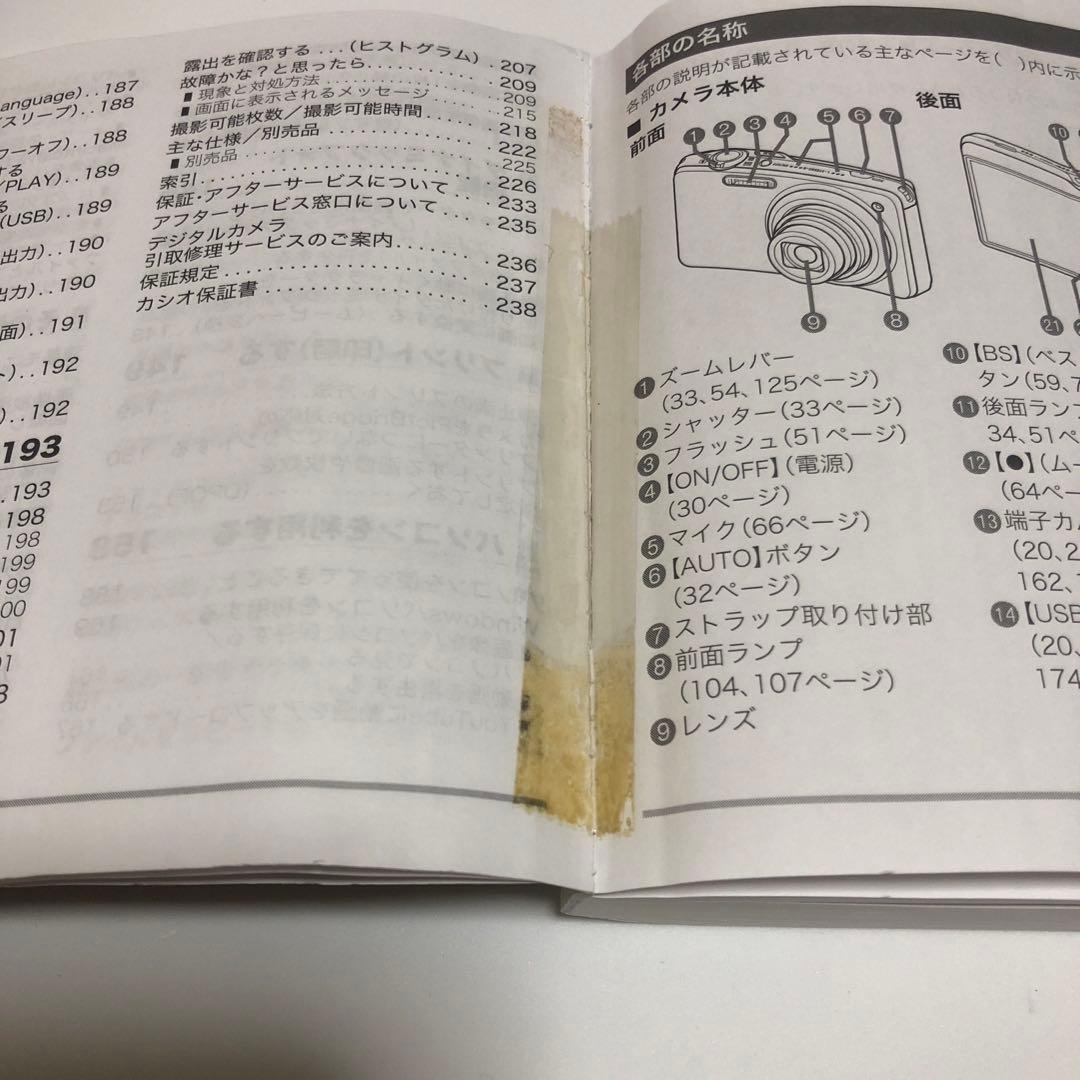 anguage)..187
スリープ)..188
フーオフ)..188
する
/PLAY)..189
る
(USB)..189
出力)..190
出力)..190
面)..191
..192
)..192
193
..193
198
198
199
199
00
01
91
3
露出を確認する...(ヒストグラム).207
故障かな?と思ったら............209
■現象と対処方法....................209
■画面に表示されるメッセージ........215
撮影可能枚数/撮影可能時間........218
主な仕様/別売品..................222
■別売品............................225
索引..............................226
保証・アフターサービスについて....233
アフターサービス窓口について.....235
デジタルカメラ
引取修理サービスのご案内.........236
保証規定..........................237
カシオ保証書......................238
各部の名称
各部の説明が記載されている主なページを( )内に示
■ カメラ本体
前面
後面
1 2 3 4 5 6 7
10
9 8
21
❶ズームレバー
(33、54、125ページ)
❷シャッター(33ページ)
❸フラッシュ(51ページ)
❹【ON/OFF】(電源)
(30ページ)
❺マイク(66ページ)
❻【AUTO】ボタン
(32ページ)
❼ストラップ取り付け部
❽前面ランプ
(104、107ページ)
❾レンズ
❿【BS】(ベス
タン(59、7
⓫後面ランプ
34、51ペ
⓬【●】(ムー
(64ペー
⓭端子カ
(20、2
162、1
⓮【USB
(20、
174